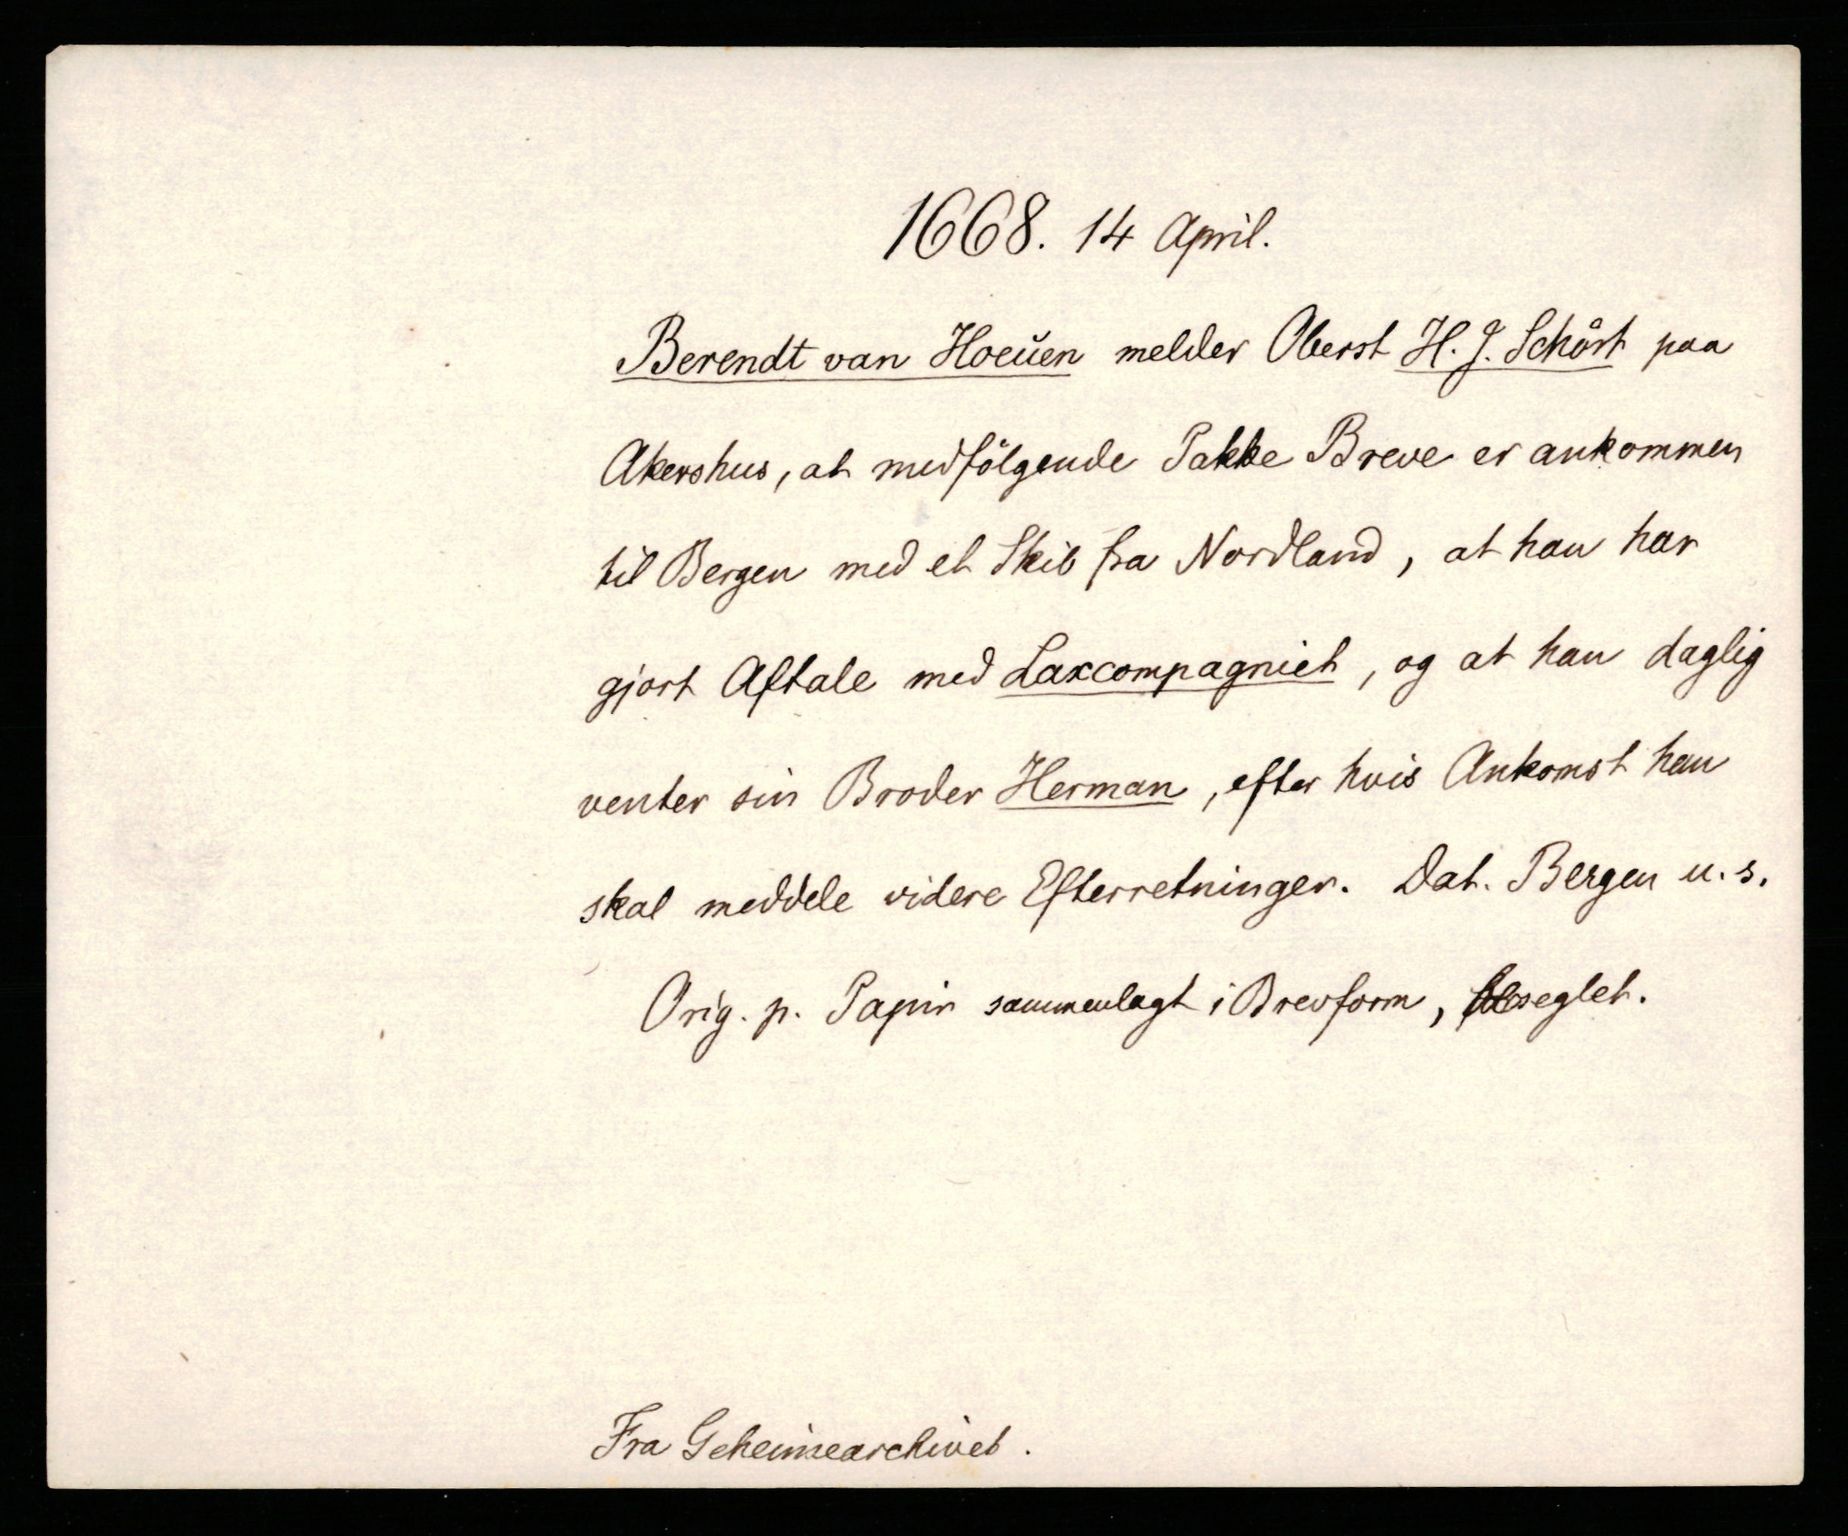 1668. 14 April.
Berendt van Hoeŭen melder Oberst H. J. Schört paa
Akershus, at medfölgende Pakke Breve er ankommen
til Bergen med et Skib fra Nordland, at han har
gjort Aftale med Laxcompagniet, og at han daglig
venter sin Broder Herman, efter hvis Ankomst han
skal meddele videre Efterretninger. Dat. Bergen u. s.
Orig. p. Papir sammenlagt i Brevform, beseglet.
Fra Geheimearchivet.